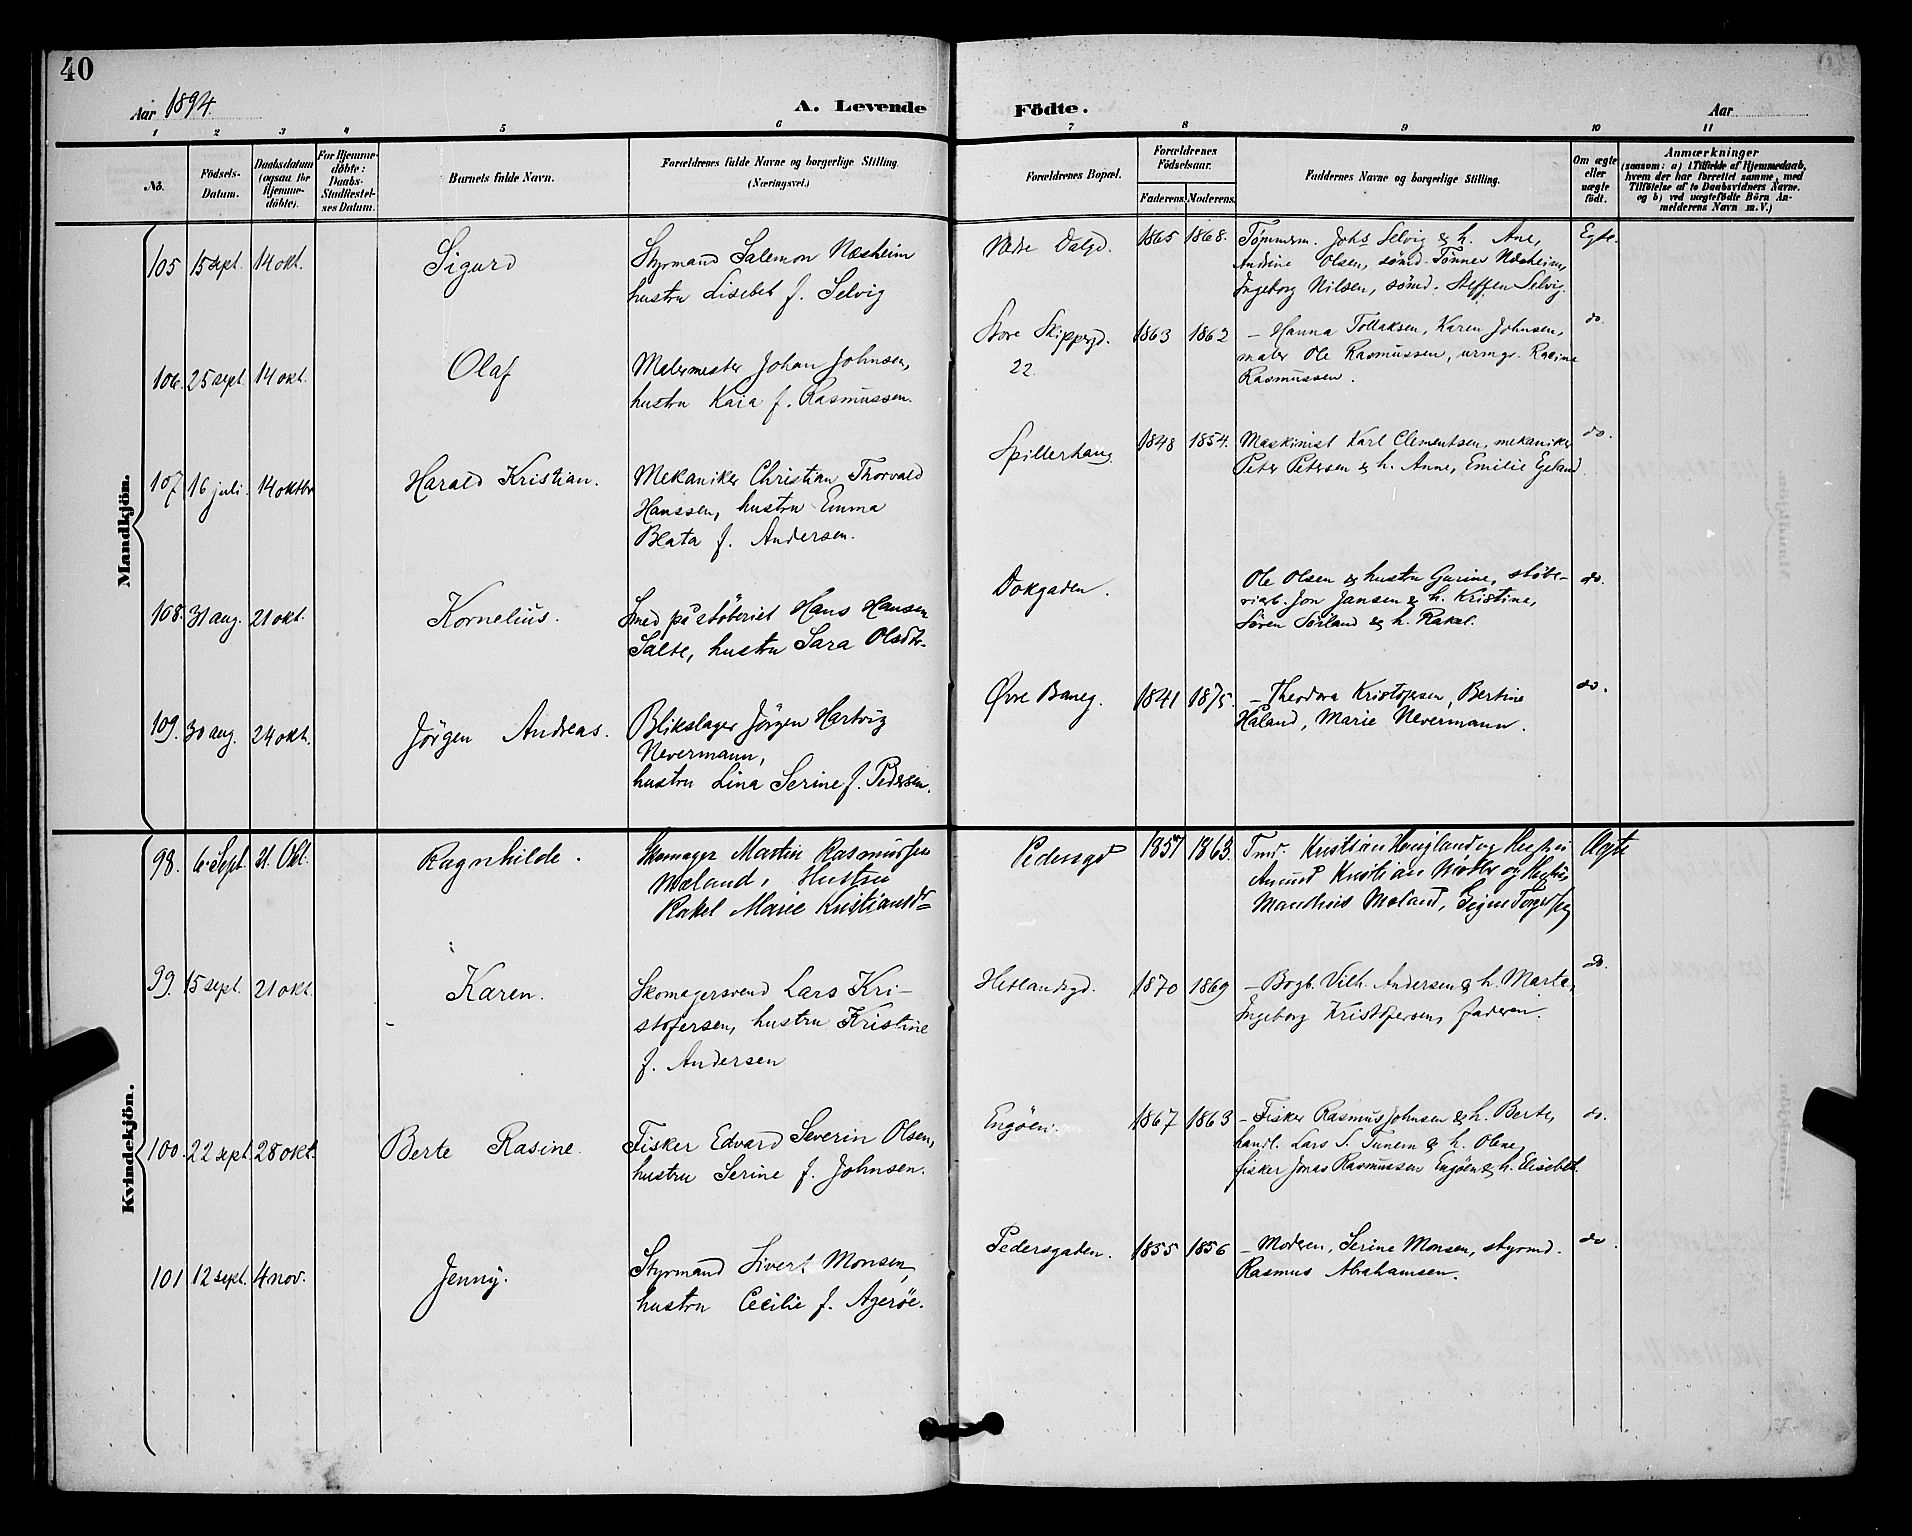 40
Aar 1894.
A. Levende Födte.
Aar
1 2 3 4 5 6 7 8 9 10 11
No.
Födsels-
Datum.
Daabsdatum
(ogsaa for
Hjemme-
döbte).
For Hjemme-
döbte:
Daabs-
Stadfæstel-
ses Datum.
Barnets fulde Navn.
Forældrenes fulde Navne og borgerlige Stilling
(Næringsvei.)
Forældrenes Bopæl.
Forældrenes
Födselsaar.
Faderens Moderens.
Faddernes Navne og borgerlige Stilling.
Om ægte
eller
uægte
født.
Anmærkninger
(saasom: a) i Tilfælde af Hjemmedaab,
hvem der har forrettet samme, med
Tilföielse af to Daabsvidners Navne.
og b) ved uægtefödte Börn An-
melderens Navn m.V.)
Mandkjön.
105 15 sept. 14 okt.
Sigurd
Styrmand Salemon Næsheim
hustru Lisebet f. Selvig
Nedre Dalgd.
1865 1868.
Tømmerm. Johs Selvig & h. Ane,
Andrine Olsen, sömd. Tønnes Næsheim,
Ingeborg Nilsen, sömd. Steffen Selvig.
Egte.
106. 25 sept. 14 okt.
Olaf
Malermester Johan Johnsen,
hustru Kaia f. Rasmussen.
Store Skippergd.
22.
1863 1862
– Hanna Tollaksen, Karen Johnsen,
maler Ole Rasmussen, urmgr. Rasine
Rasmussen.
do.
107 16 juli. 14 oktbr
Harald Kristian.
Mekaniker Christian Thorvald
Hanssen, hustru Emma
Beata f. Andersen.
Spillerhaug.
1848 1854.
Maskinist Karl Clementsen, mekaniker
Peter Petersen & h. Anne, Emilie Egeland.
do.
108. 31 aug. 21 okt.
Kornelius.
Smed på støberiet Hans Hansen
Salte, hustru Sara Olsdtr.
Dokgaden.
Ole Olsen & hustru Gurine, støbe-
riarb. Jon Jansen & h. Kristine,
Sören Sörland & h. Rakel.
do.
109. 30 aug. 24 okt.
Jörgen Andreas.
Blikslager Jörgen Hartvig
Nevermann,
hustru Lina Serine f. Pedersen.
Øvre Baneg.
1841 1875.
– Theodora Kristofersen, Bertine
Håland, Marie Nevermann.
do.
Kvindekjön.
98. 6 Sept 21. Okt.
Ragnhilde.
Skomager Martin Rasmussen
Mæland, Hustru
Rakel Marie Kristiansdr
Pedersgd
1857 1863.
Kristian Haugland og Hustru
Kristian og Hustru
Mæland,
Ægte
99. 15 sept. 21 okt.
Karen.
Skomagersvend Lars Kri-
stofersen, hustru Kristine
f. Andersen
Hetlandsgd.
1870 1869
– Bogb. Vilh. Andersen & h. Marta,
Ingeborg Kristofersen, faderen.
do.
100. 22 sept. 28 okt.
Berte Rasine.
Fisker Edvard Severin Olsen,
hustru Serine f. Johnsen.
Engöen.
1867 1863
– Fisker Rasmus Johnsen & h. Berte,
handl. Lars S. Tunem & h. Olene,
fisker Jonas Rasmussen Engöen & h. Elisebet.
do.
101 12 sept. 4 nov.
Jenny.
Styrmand Sivert Monsen,
hustru Cecilie f. Ageröe.
Pedersgaden.
1855 1856
– Moderen, Serine Monsen, styrmd.
Rasmus Abrahamsen.
do.